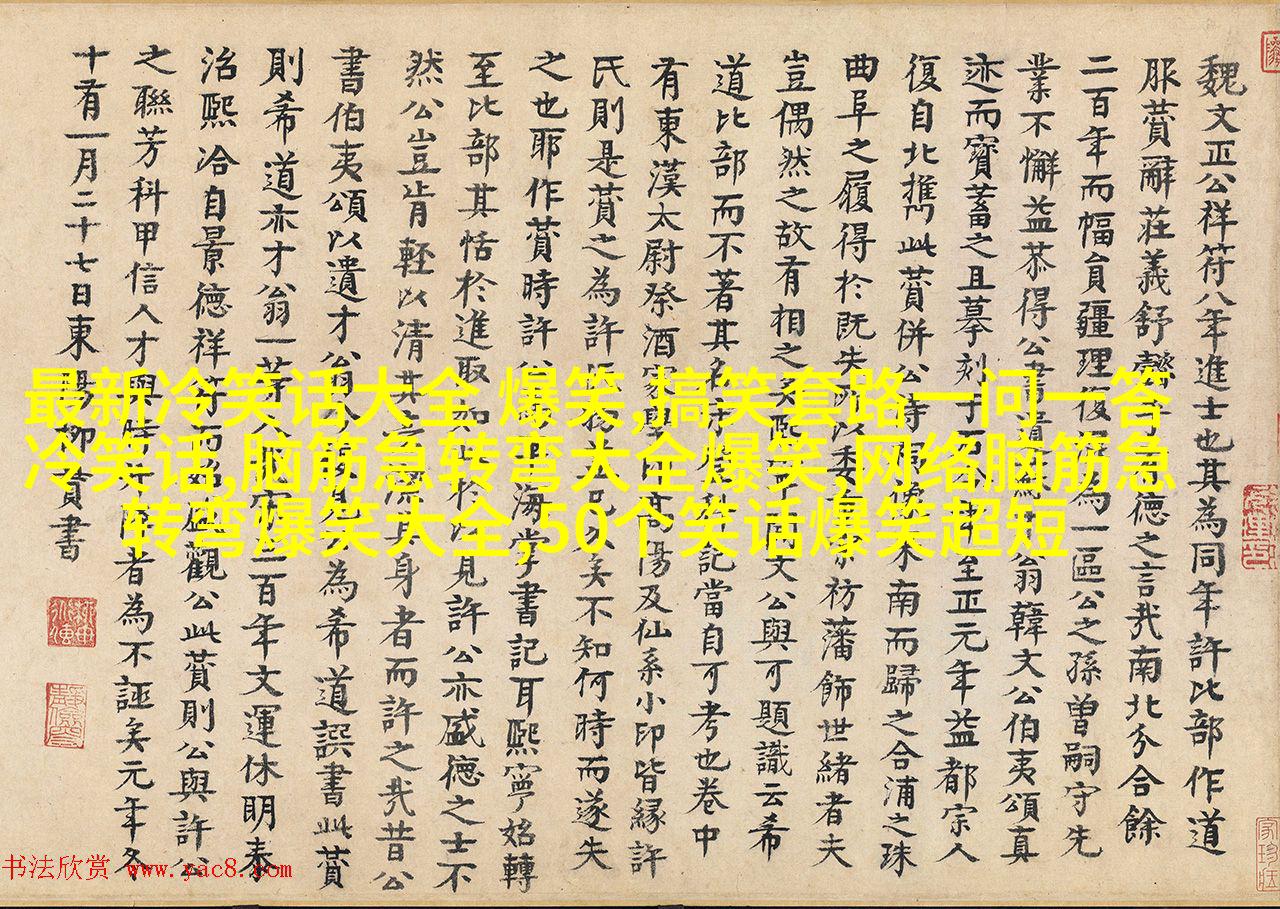 魏文正公祥符八年進士也其為同年許比部作道
服贊辭莊義舒 德之言哉南北分合餘
二百年而幅員疆理復 為一區公之孫曾嗣守先
業不懈益恭得公書 翁韓文公伯夷頌真
迹而寶蓄之且摹刻于石 至正元年益都宗人
復自北攜此贊併公 像來南而歸之合浦之珠
曲阜之履得於既失所以 祊藩飾世緒者夫
豈偶然之故有相之矣熙寧 文公與可題識云希
道比部而不著其名 登科記當自可考也卷中
有東漢太尉祭酒家學 高陽及仙系小印皆緣許
氏則是贊之為許氏物 已久矣不知何時而遂失
之也耶作贊時許公 海掌書記耳熙寧始轉
至比部其恬於進取如此於此見許公亦盛德之士不
然公豈肯輕以清其言潔其身者而許之哉昔公
書伯夷頌以遺才翁今 為希道譔書此贊
則希道亦才翁一等人 宋二百年文運休明泰
治熙洽自景德祥符而始 觀公此贊則公與許公
之聯芳科甲信人才興 者為不誣矣元年冬
十有一月二十七日東陽柳貫書
最新冷笑话大全 爆笑,搞笑套路一问一答
冷笑话,脑筋急转弯大全爆笑,网络脑筋急
转弯爆笑大全,50个笑话爆笑超短
书法欣赏 www.yac8.com